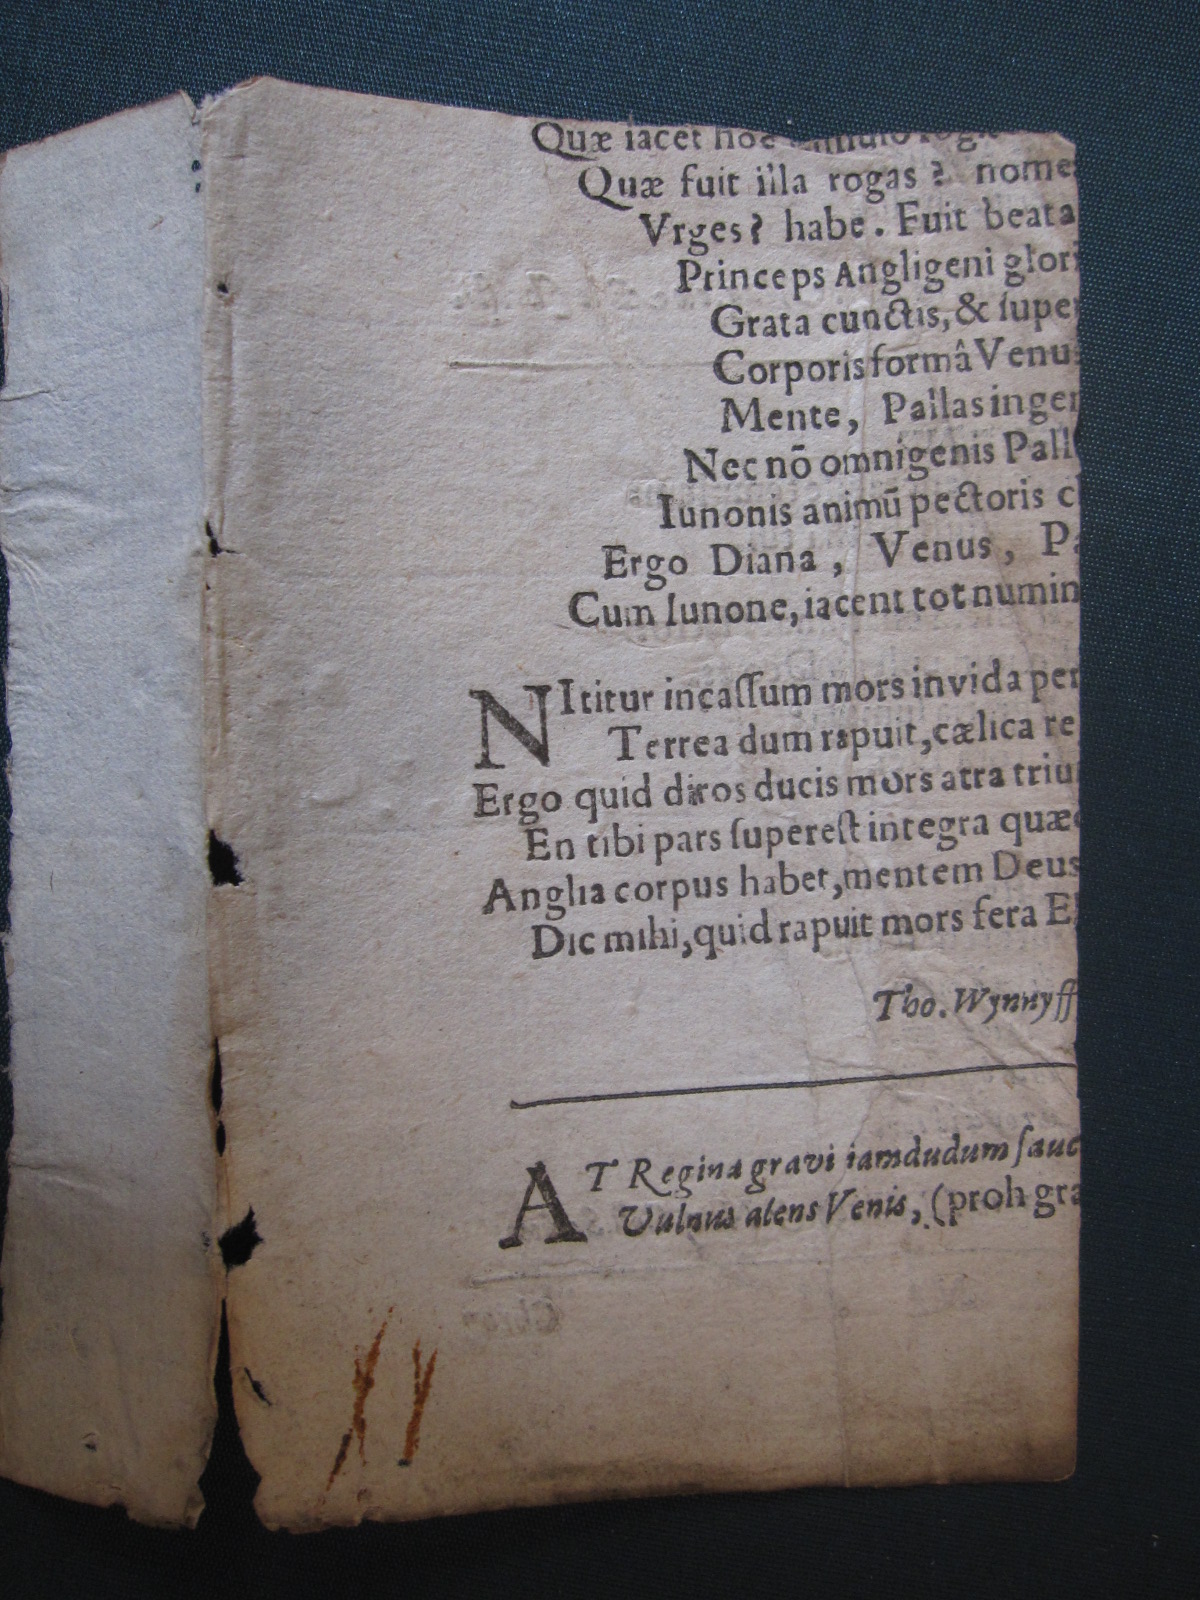 Quæ iacet hoc
Quæ fuit illa rogas? nome
Vrges? habe. Fuit beata
Princeps Angligeni glori
Grata cunctis, & ſuper
Corporis formâ Venus
Mente, Pallas ingen
Nec nō omnigenis Pall
Iunonis animū pectoris c
Ergo Diana, Venus, Pa
Cum Iunone, iacent tot numin
NItitur incaſſum mors invida per
Terrea dum rapuit, cælica re
Ergo quid diros ducis mors atra triu
En tibi pars ſupereſt integra quæ
Anglia corpus habet, mentem Deus
Dic mihi, quid rapuit mors fera El
Tho. Wynnyff
AT Regina gravi iamdudum ſauc
Vulnus alens Venis, (proh gra